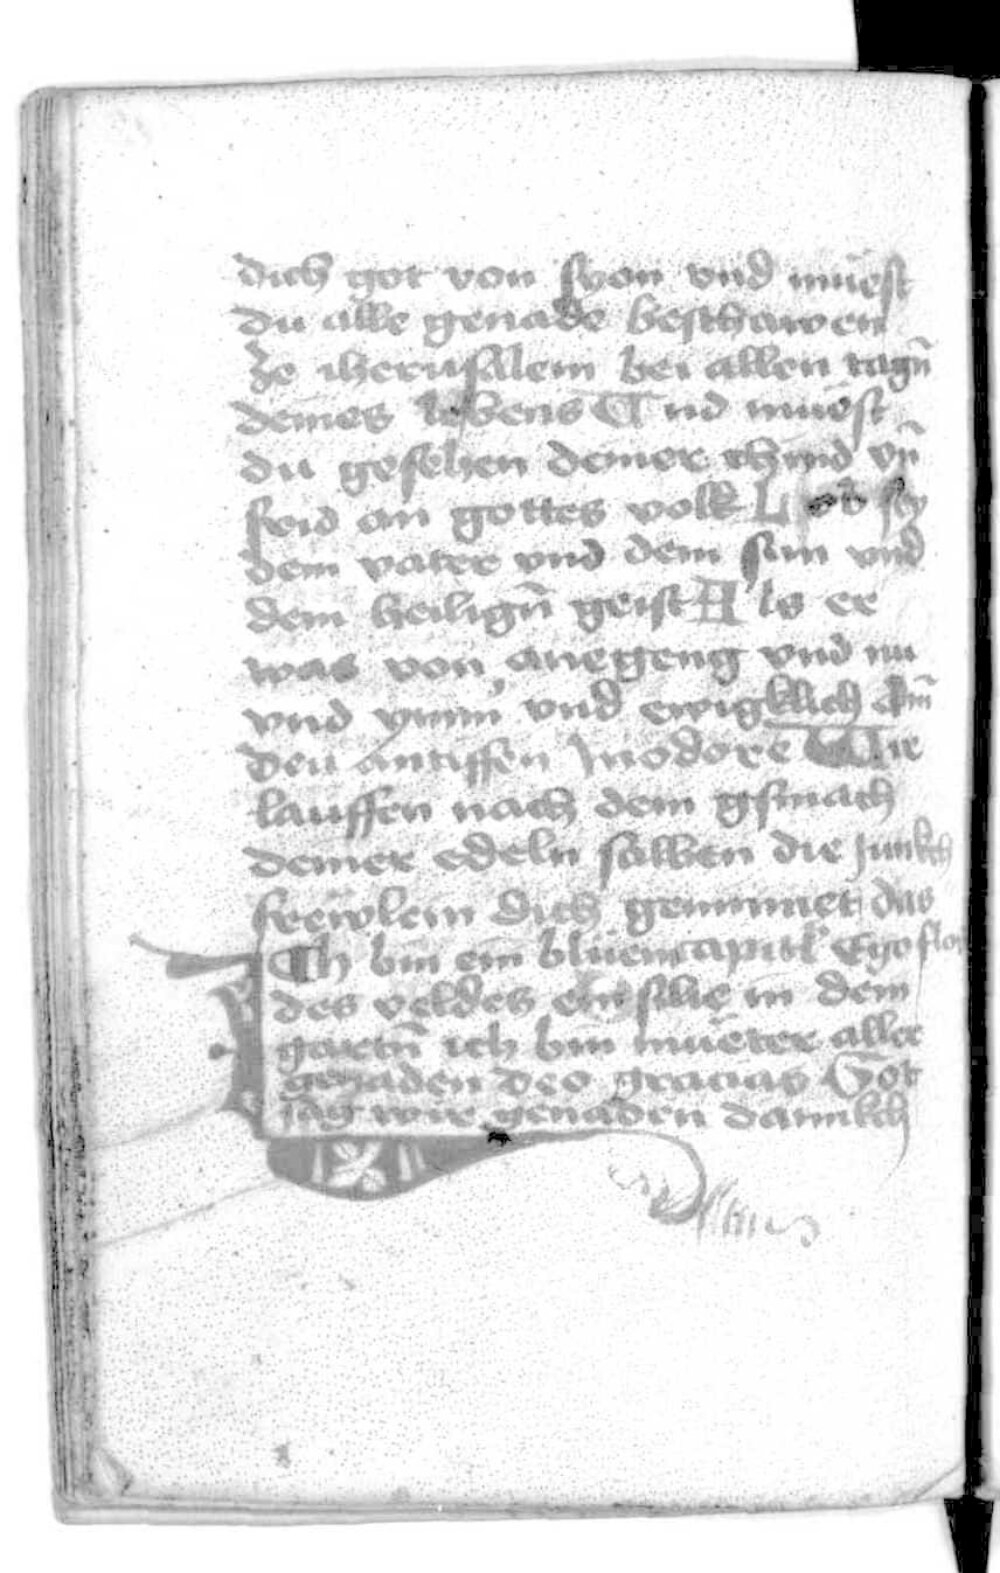 dich got von syon vnd müest
du alle genade beschawen
ze iherusalem bei allen tagn̄
deines lebens Vnd müest
du gesehen deiner chind vn̄
frid an gottes volk Lob sey
dem vater vnd dem sun vnd
dem heilign̄ geist Als er
was von anegeng vnd nu
vnd ymm vnd ewigklich Am̄
den antiffen Inodore Wir
lauffen nach dem gsmach
deiner edeln salben die junkch
frewlein dich geminnet das
Ich bin ein blüem capitl' Ego flos
des veldes ein lilie in dem
gartn̄ ich bin müeter aller
genaden deo gracias Got
sag wir genaden dannkch